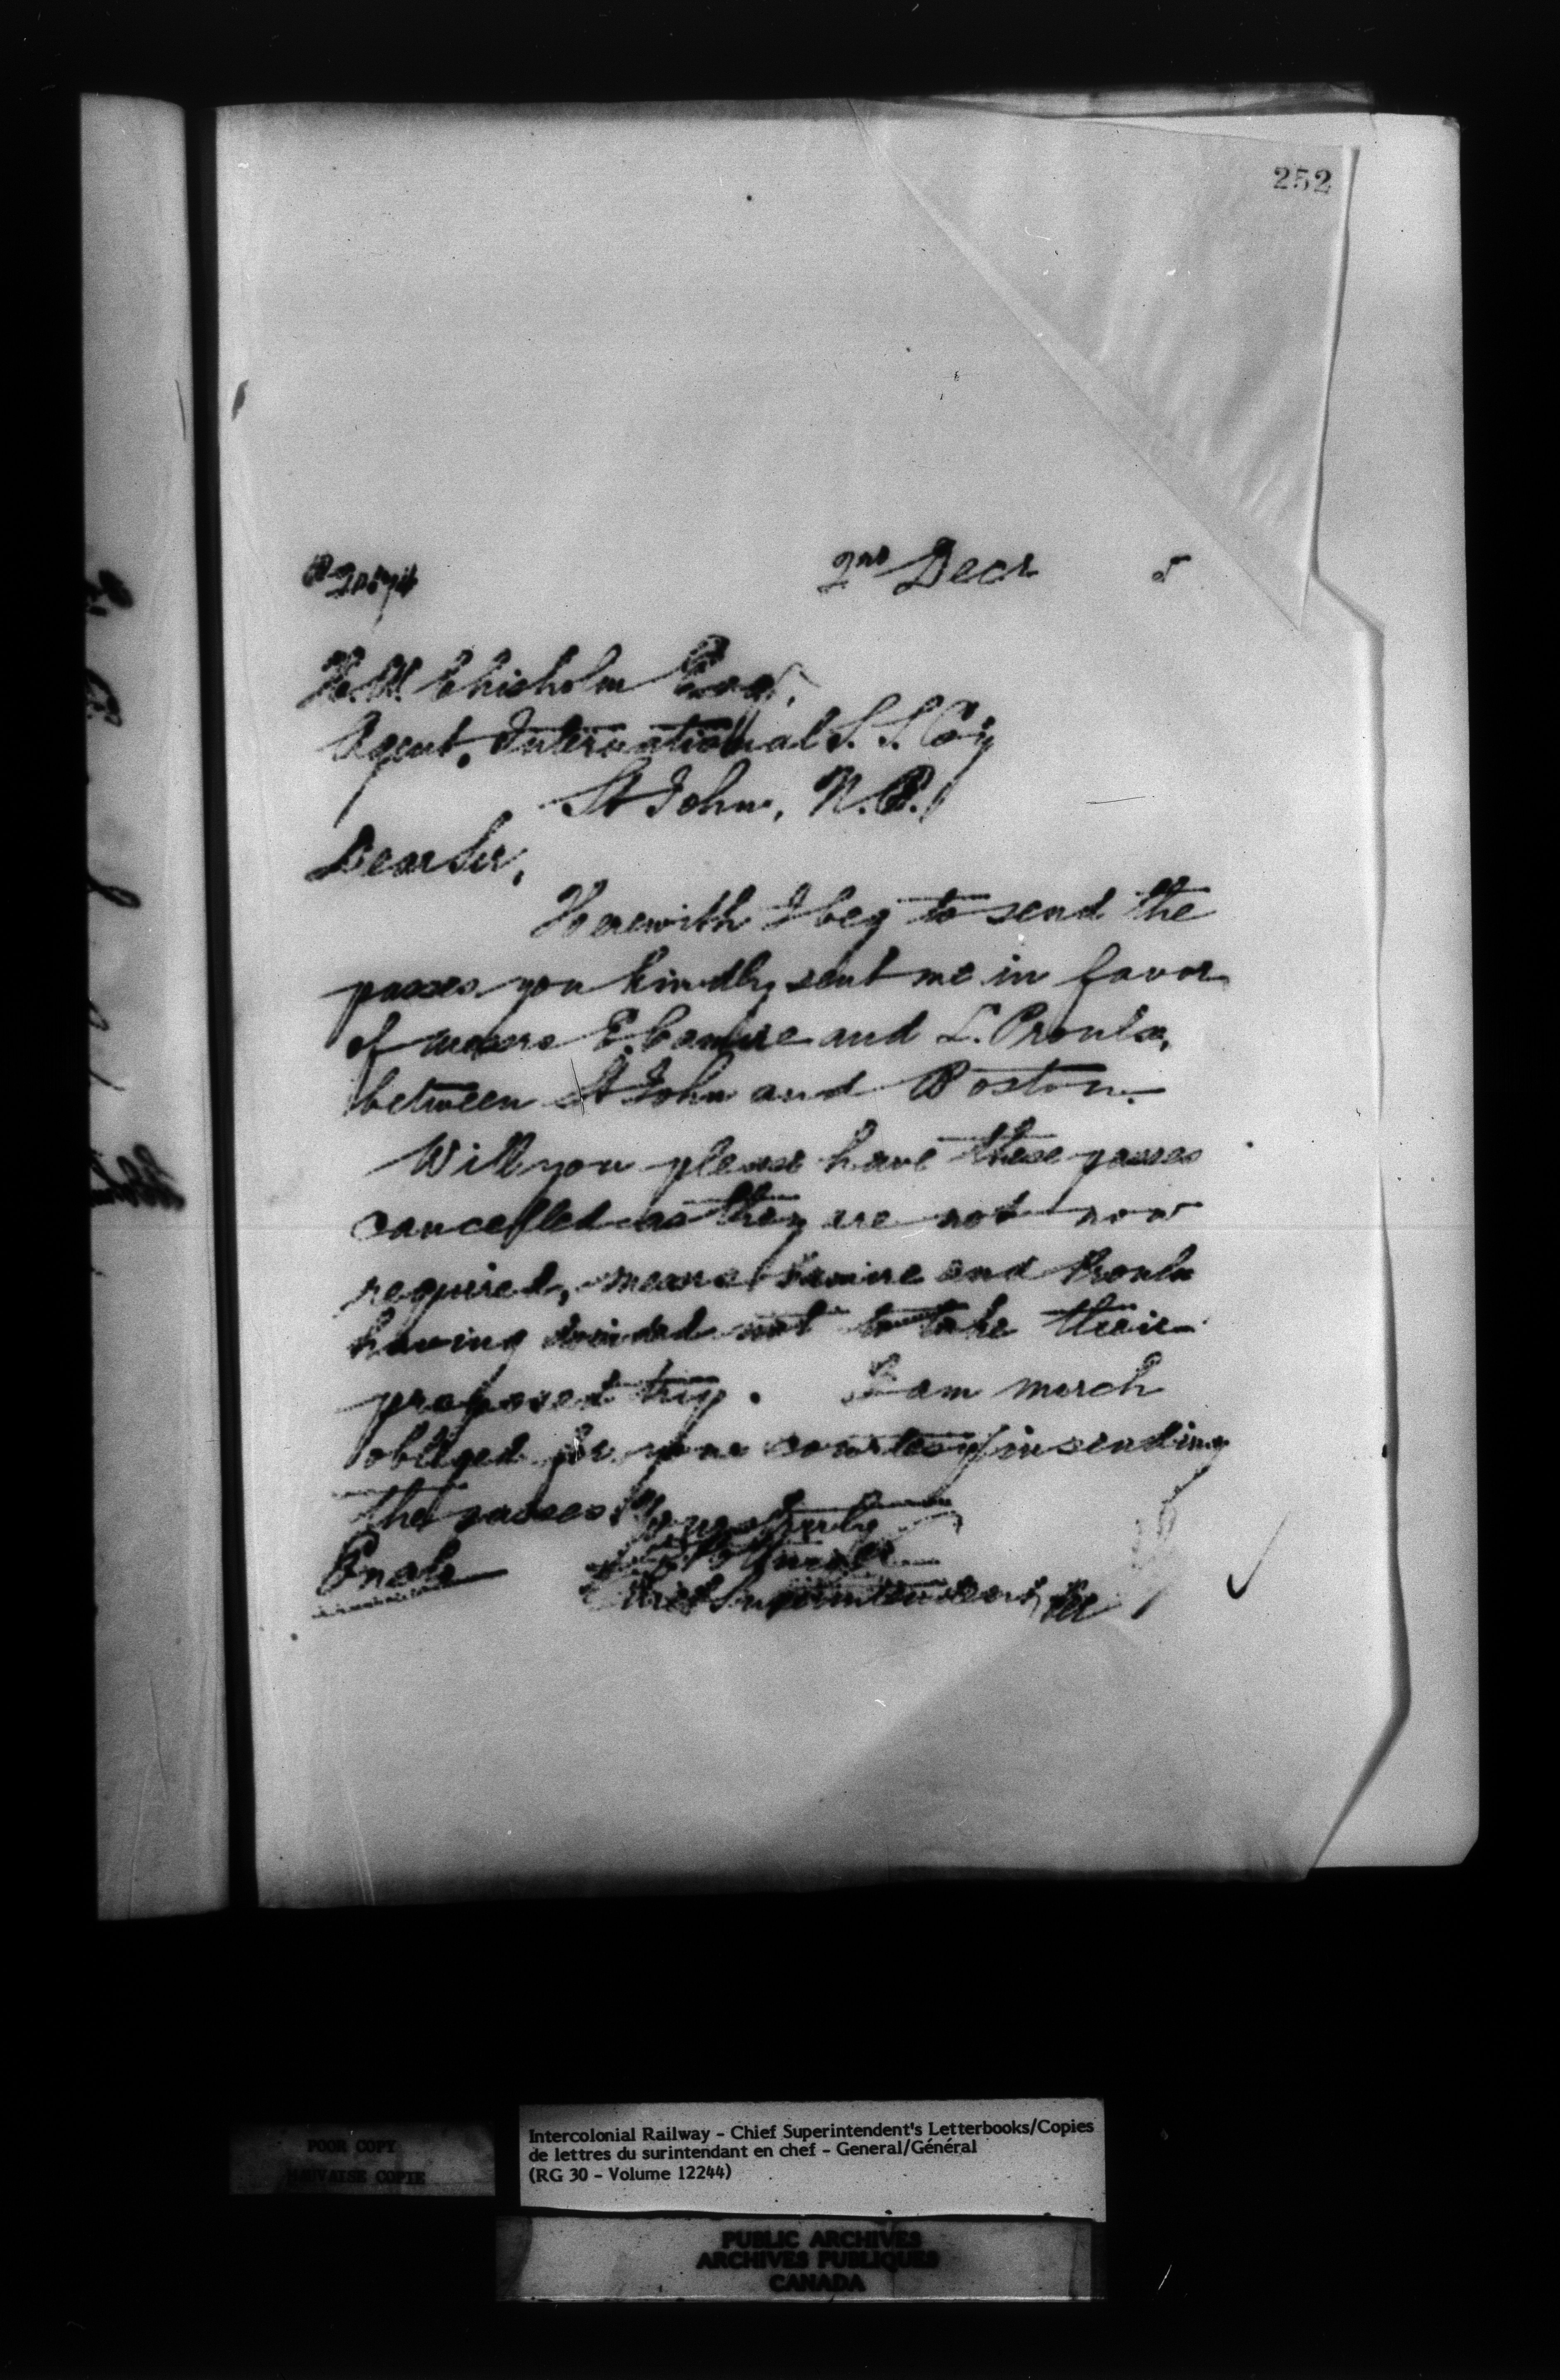 252
2nd Decr 5
H.W. Chisholm Esq.
Agent, International S.S. Co'y
St John, N.B.
Dear Sir,
Herewith I beg to send the
passes you kindly sent me in favor
of messrs E. and L. Proulx,
between St John and Boston.
Will you please have these passes
cancelled as they are not now
required, messrs and Proulx
having decided not to take their
proposed trip. I am much
obliged for your courtesy in sending
the passes. Yours truly
Encls
Chief Superintendent,
POOR COPY
MAUVAISE COPIE
Intercolonial Railway - Chief Superintendent's Letterbooks/Copies
de lettres du surintendant en chef - General/Général
(RG 30 - Volume 12244)
PUBLIC ARCHIVES
ARCHIVES PUBLIQUES
CANADA